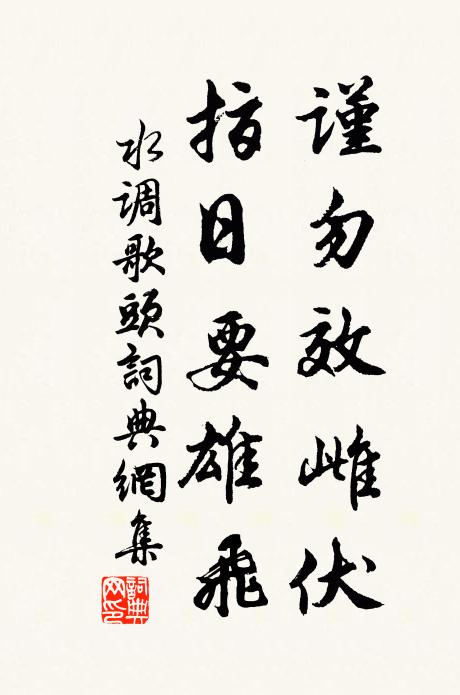 謹勿效雌伏
指日要雄飛
水調歌頭詞典網集
詞典網印